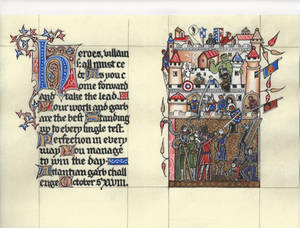 heroes, villain
s all must ce
de As you c
ome forward
And take the lead
Your work and garb
are the best Standing
up to every single test.
Perfection in every
way You manage
to win the day
Atlantian garb chall
enge October